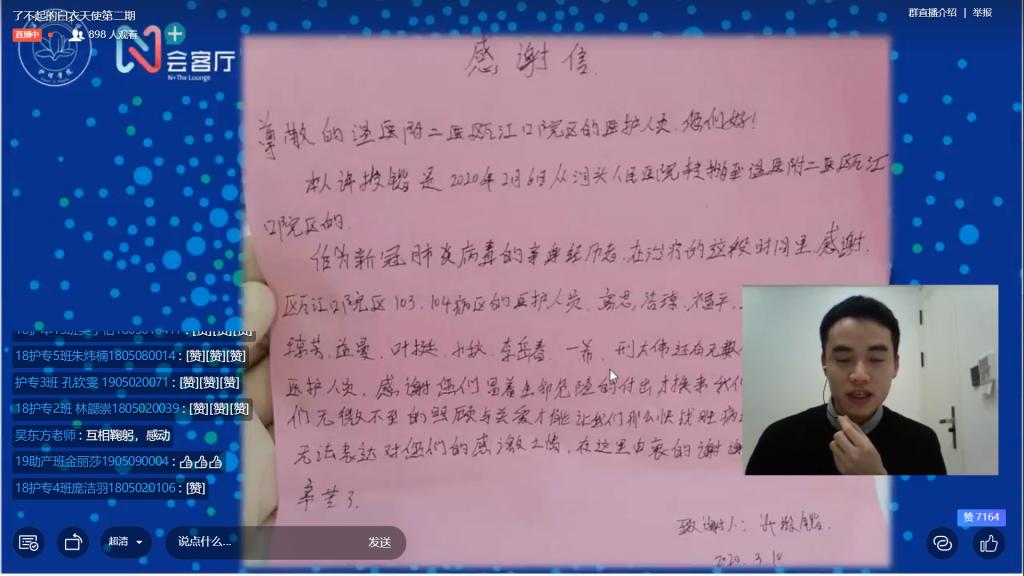 了不起的白衣天使第二期
群直播介绍 | 举报
直播中 898 人观看
N+ 会客厅
N+The Lounge
感谢信
尊敬的温医附二医瓯江口院区的医护人员.您们好!
本人许 是2020年2月6日从 人民医院转 至温医附二医瓯江
口院区的.
作为新冠肺炎病毒的亲身经历者.在治疗的这段时间里.感谢.
瓯江口院区103.104病区的医护人员
叶挺 李岳春 一希
医护人员.感谢您们冒着生命危险的付出才换来我们
们无微不至的照顾与关爱才能让我们那么快战胜病
无法表达对您们的感激之情.在这里由衷的谢谢
辛苦了
致谢人:许
2020.3.10
18护专5班朱炜楠1805080014:[赞][赞][赞]
护专3班 孔钦雯 1905020071:[赞][赞][赞]
18护专2班 林勰崇1805020039:[赞][赞][赞]
吴东方老师:互相鞠躬，感动
19助产班金丽莎1905090004:
18护专4班庞洁羽1805020106:[赞]
赞 7164
超清
说点什么...
发送